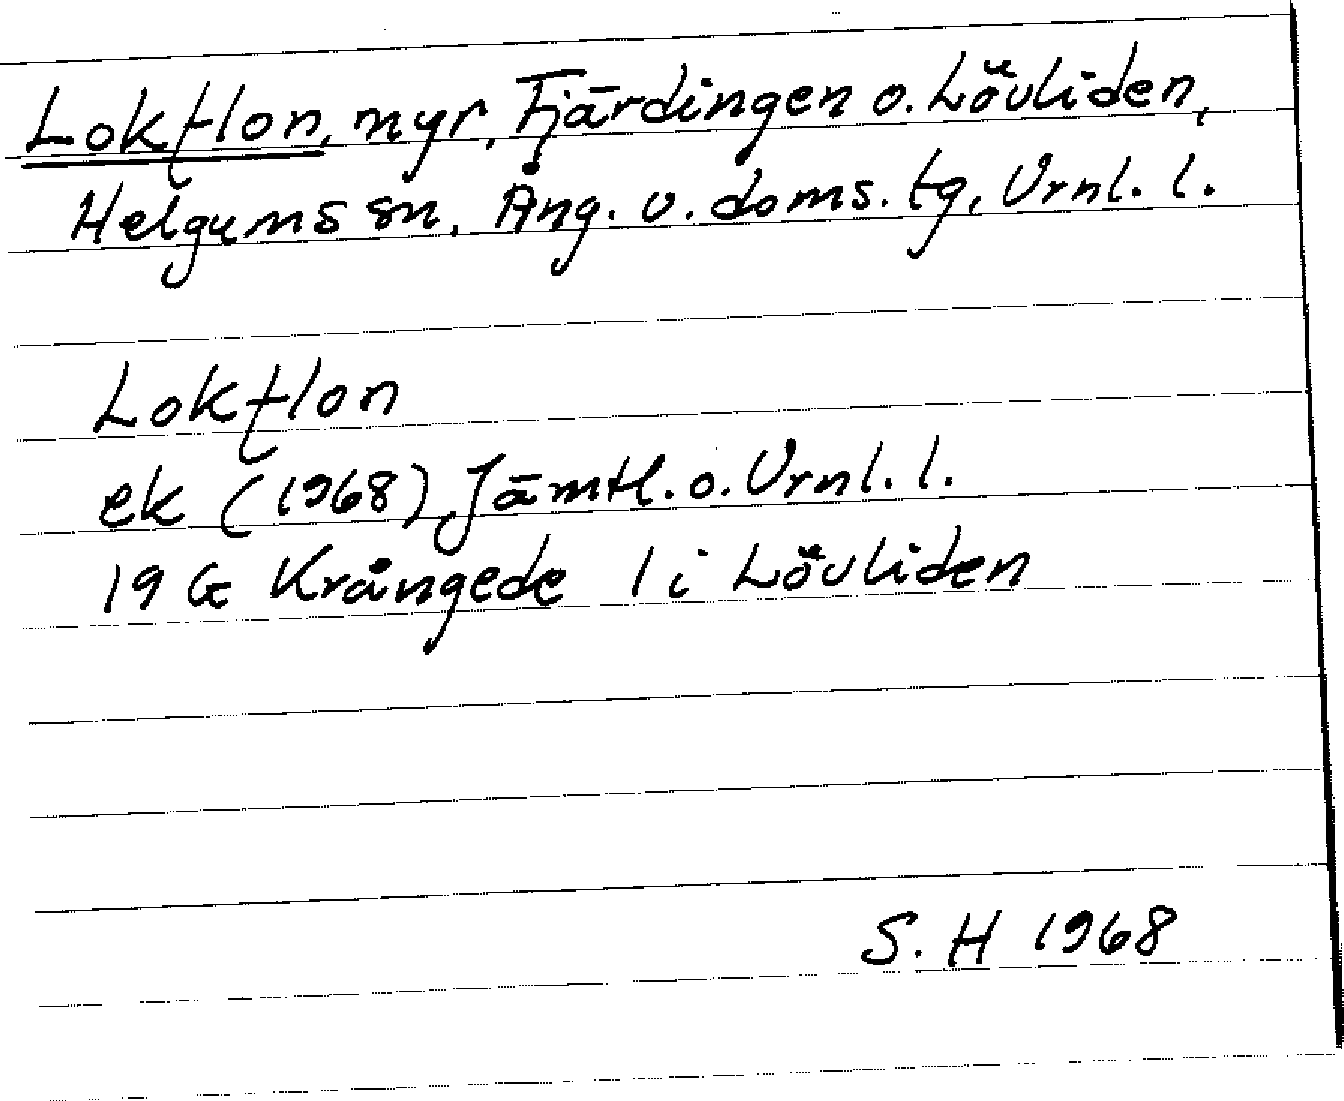 Lokflon, myr, Fjärdingen o. Lövliden,
Helgums sn, Ång. v. doms. tg, Vrnl. l.
Lokflon
ek (1968) Jämtl. o. Vrnl. l.
19 G Krångede 1 i Lövliden
S. H 1968